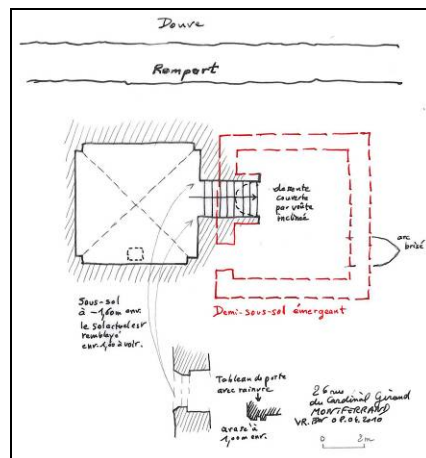 Douve
Rempart
descente
couverte
par voûte
inclinée
arc
brisé
Sous-sol
à -1,60m env.
le sol actuel est
remblayé
env. 1,00 à voir.
Demi-sous-sol émergeant
Tableau de porte
avec rainure
arasé à
1,00m env.
26 rue
du Cardinal Giraud
MONTFERRAND
VR. 09.04.2010
0 2m